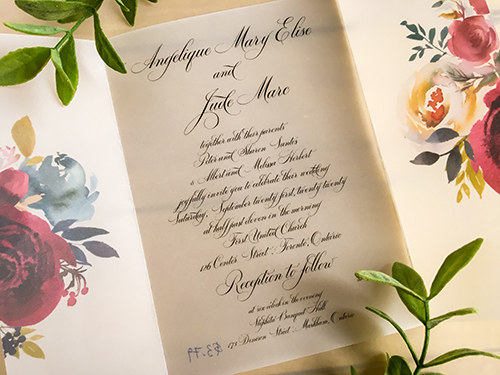 Angelique Mary Elise
and
Jude Marc
together with their parents
Peter and Sharon Santos
& Albert and Melissa Herbert
joyfully invite you to celebrate their wedding
Saturday, September twenty first, twenty twenty
at half past eleven in the morning
First United Church
186 Center Street : Toronto, Ontario
Reception to follow
at six o'clock in the evening
Banquet Hall
178 Denison Street : Markham, Ontario